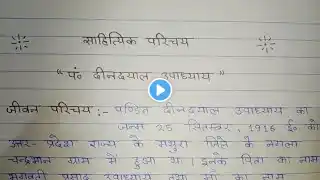 साहित्यिक परिचय
" पं० दीनदयाल उपाध्याय "
जीवन परिचय :- पण्डित दीनदयाल उपाध्याय का
जन्म 25 सितम्बर, 1916 ई. को
उत्तर- प्रदेश राज्य के मथुरा जिले के नगला
चन्द्रभान ग्राम में हुआ था। इनके पिता का नाम
भगवती प्रसाद उपाध्याय तथा माँ का नाम